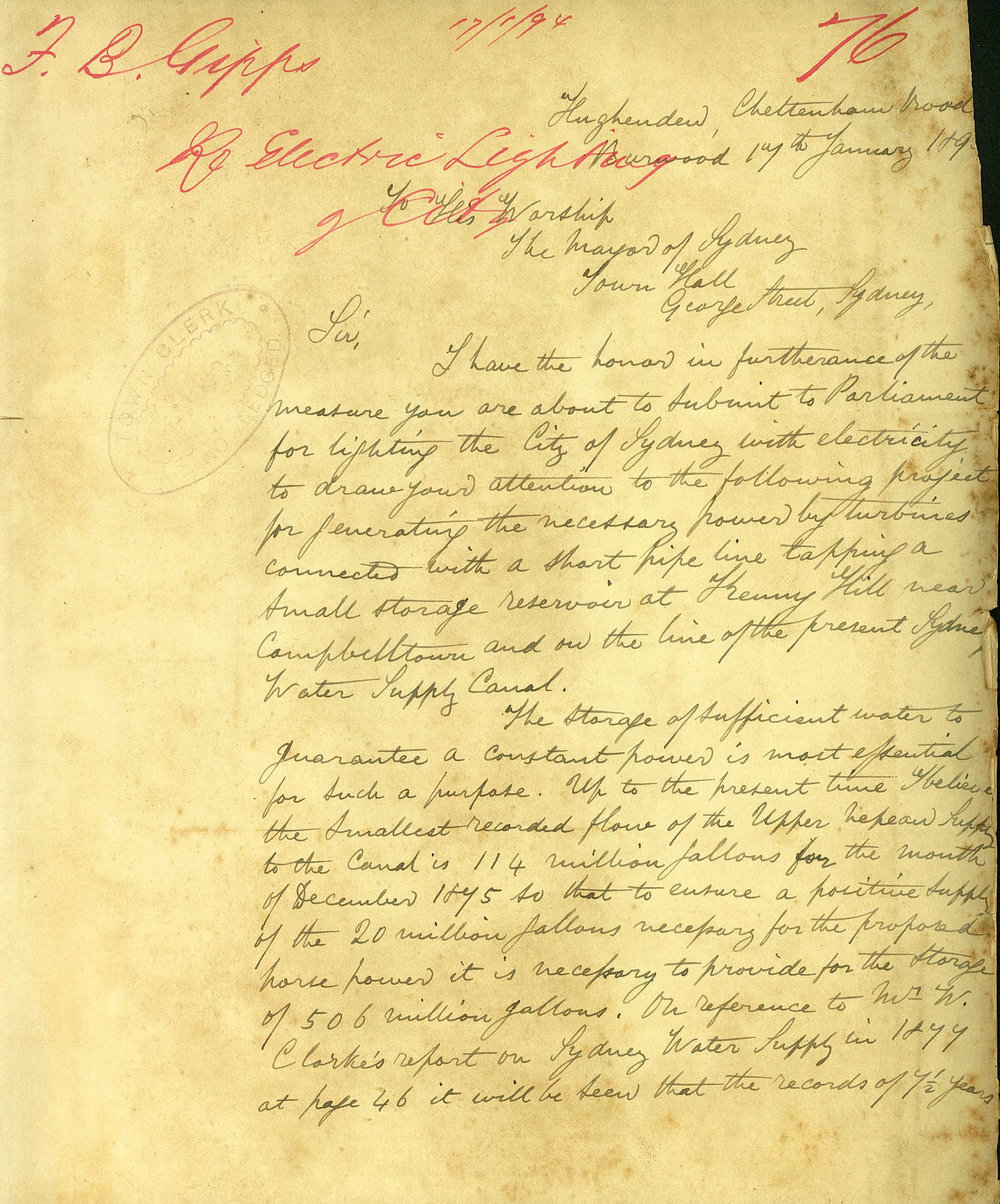 17/1/94
76
F. B. Gipps
Re Electric Lighting
of City
Hughenden, Cheltenham Road
Burwood 17th January 189
To His Worship
The Mayor of Sydney
Town Hall
George Street, Sydney,
TOWN CLERK
Sir,
I have the honor in furtherance of the
measure you are about to submit to Parliament
for lighting the City of Sydney with electricity
to draw your attention to the following project
for generating the necessary power by turbines
connected with a short pipe line tapping a
small storage reservoir at Kenny Hill near
Campbelltown and on the line of the present Sydney
Water Supply Canal.
The storage of sufficient water to
guarantee a constant power is most essential
for such a purpose. Up to the present time I believe
the smallest recorded flow of the Upper Nepean Supply
to the Canal is 114 million gallons for the month
of December 1875 so that to ensure a positive supply
of the 20 million gallons necessary for the proposed
horse power it is necessary to provide for the storage
of 506 million gallons. On reference to Mr W.
Clarke's report on Sydney Water Supply in 1877
at page 46 it will be seen that the records of 7½ years